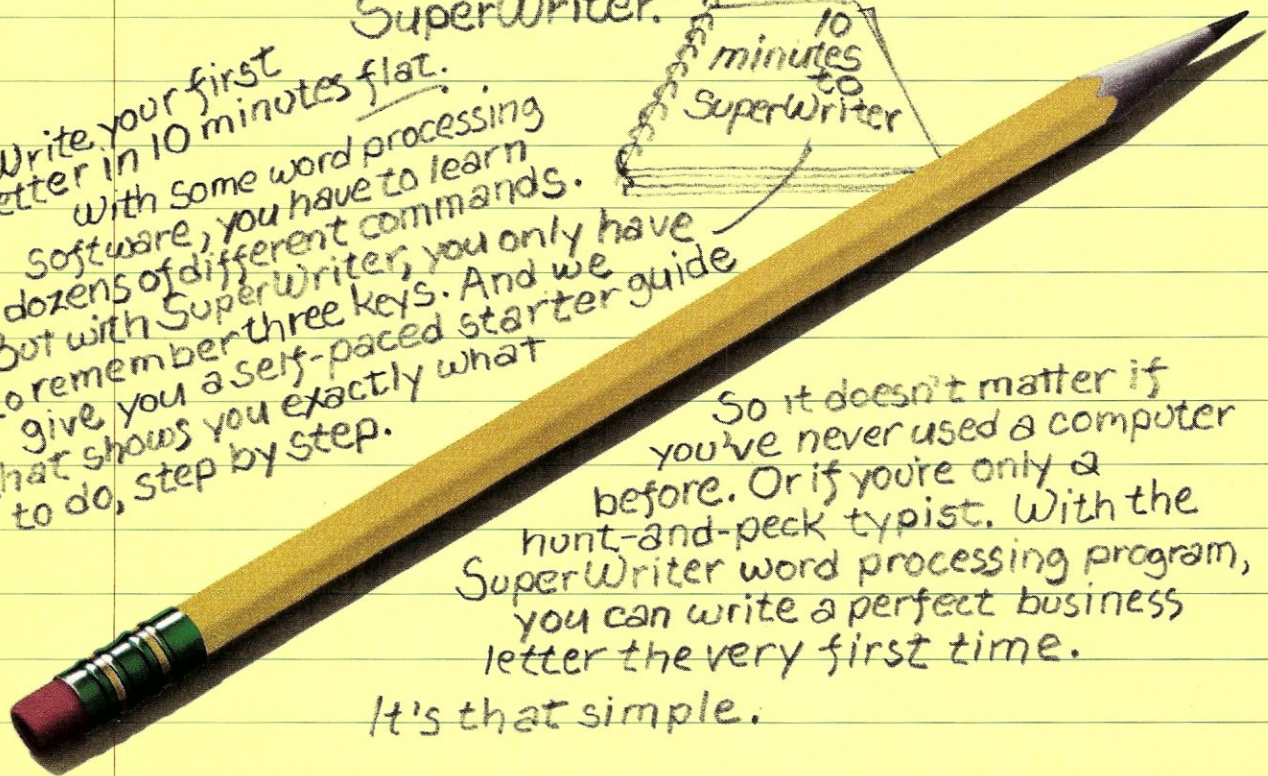 SuperWriter.
10
minutes
to
SuperWriter
Write your first
etter in 10 minutes flat.
With some word processing
software, you have to learn
dozens of different commands.
But with SuperWriter, you only have
to remember three keys. And we
give you a self-paced starter guide
hat shows you exactly what
to do, step by step.
So it doesn't matter if
you've never used a computer
before. Or if you're only a
hunt-and-peck typist. With the
SuperWriter word processing program,
you can write a perfect business
letter the very first time.
It's that simple.